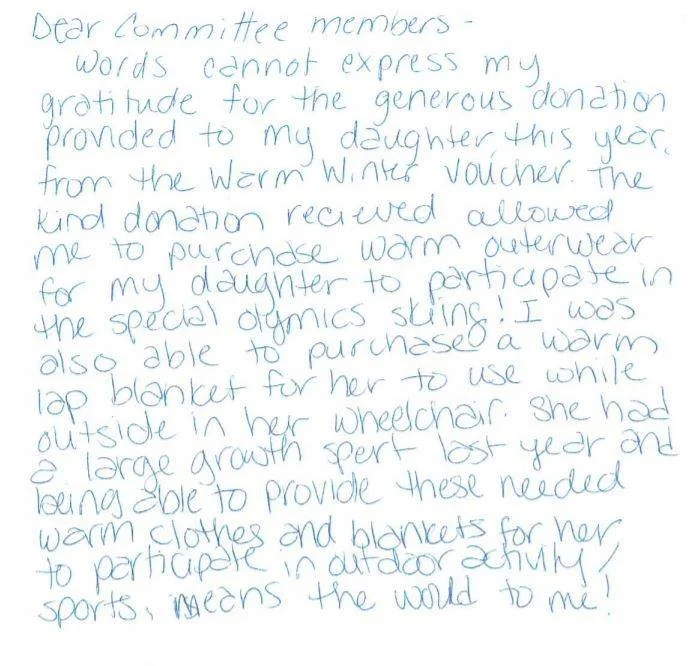 Dear Committee members -
words cannot express my
gratitude for the generous donation
provided to my daughter this year,
from the Warm Winter Voucher. The
kind donation recieved allowed
me to purchase warm outerwear
for my daughter to participate in
the special olymics skiing! I was
also able to purchase a warm
lap blanket for her to use while
outside in her wheelchair. She had
a large growth spert last year and
being able to provide these needed
warm clothes and blankets for her,
to participate in outdoor activity/
sports, means the would to me!